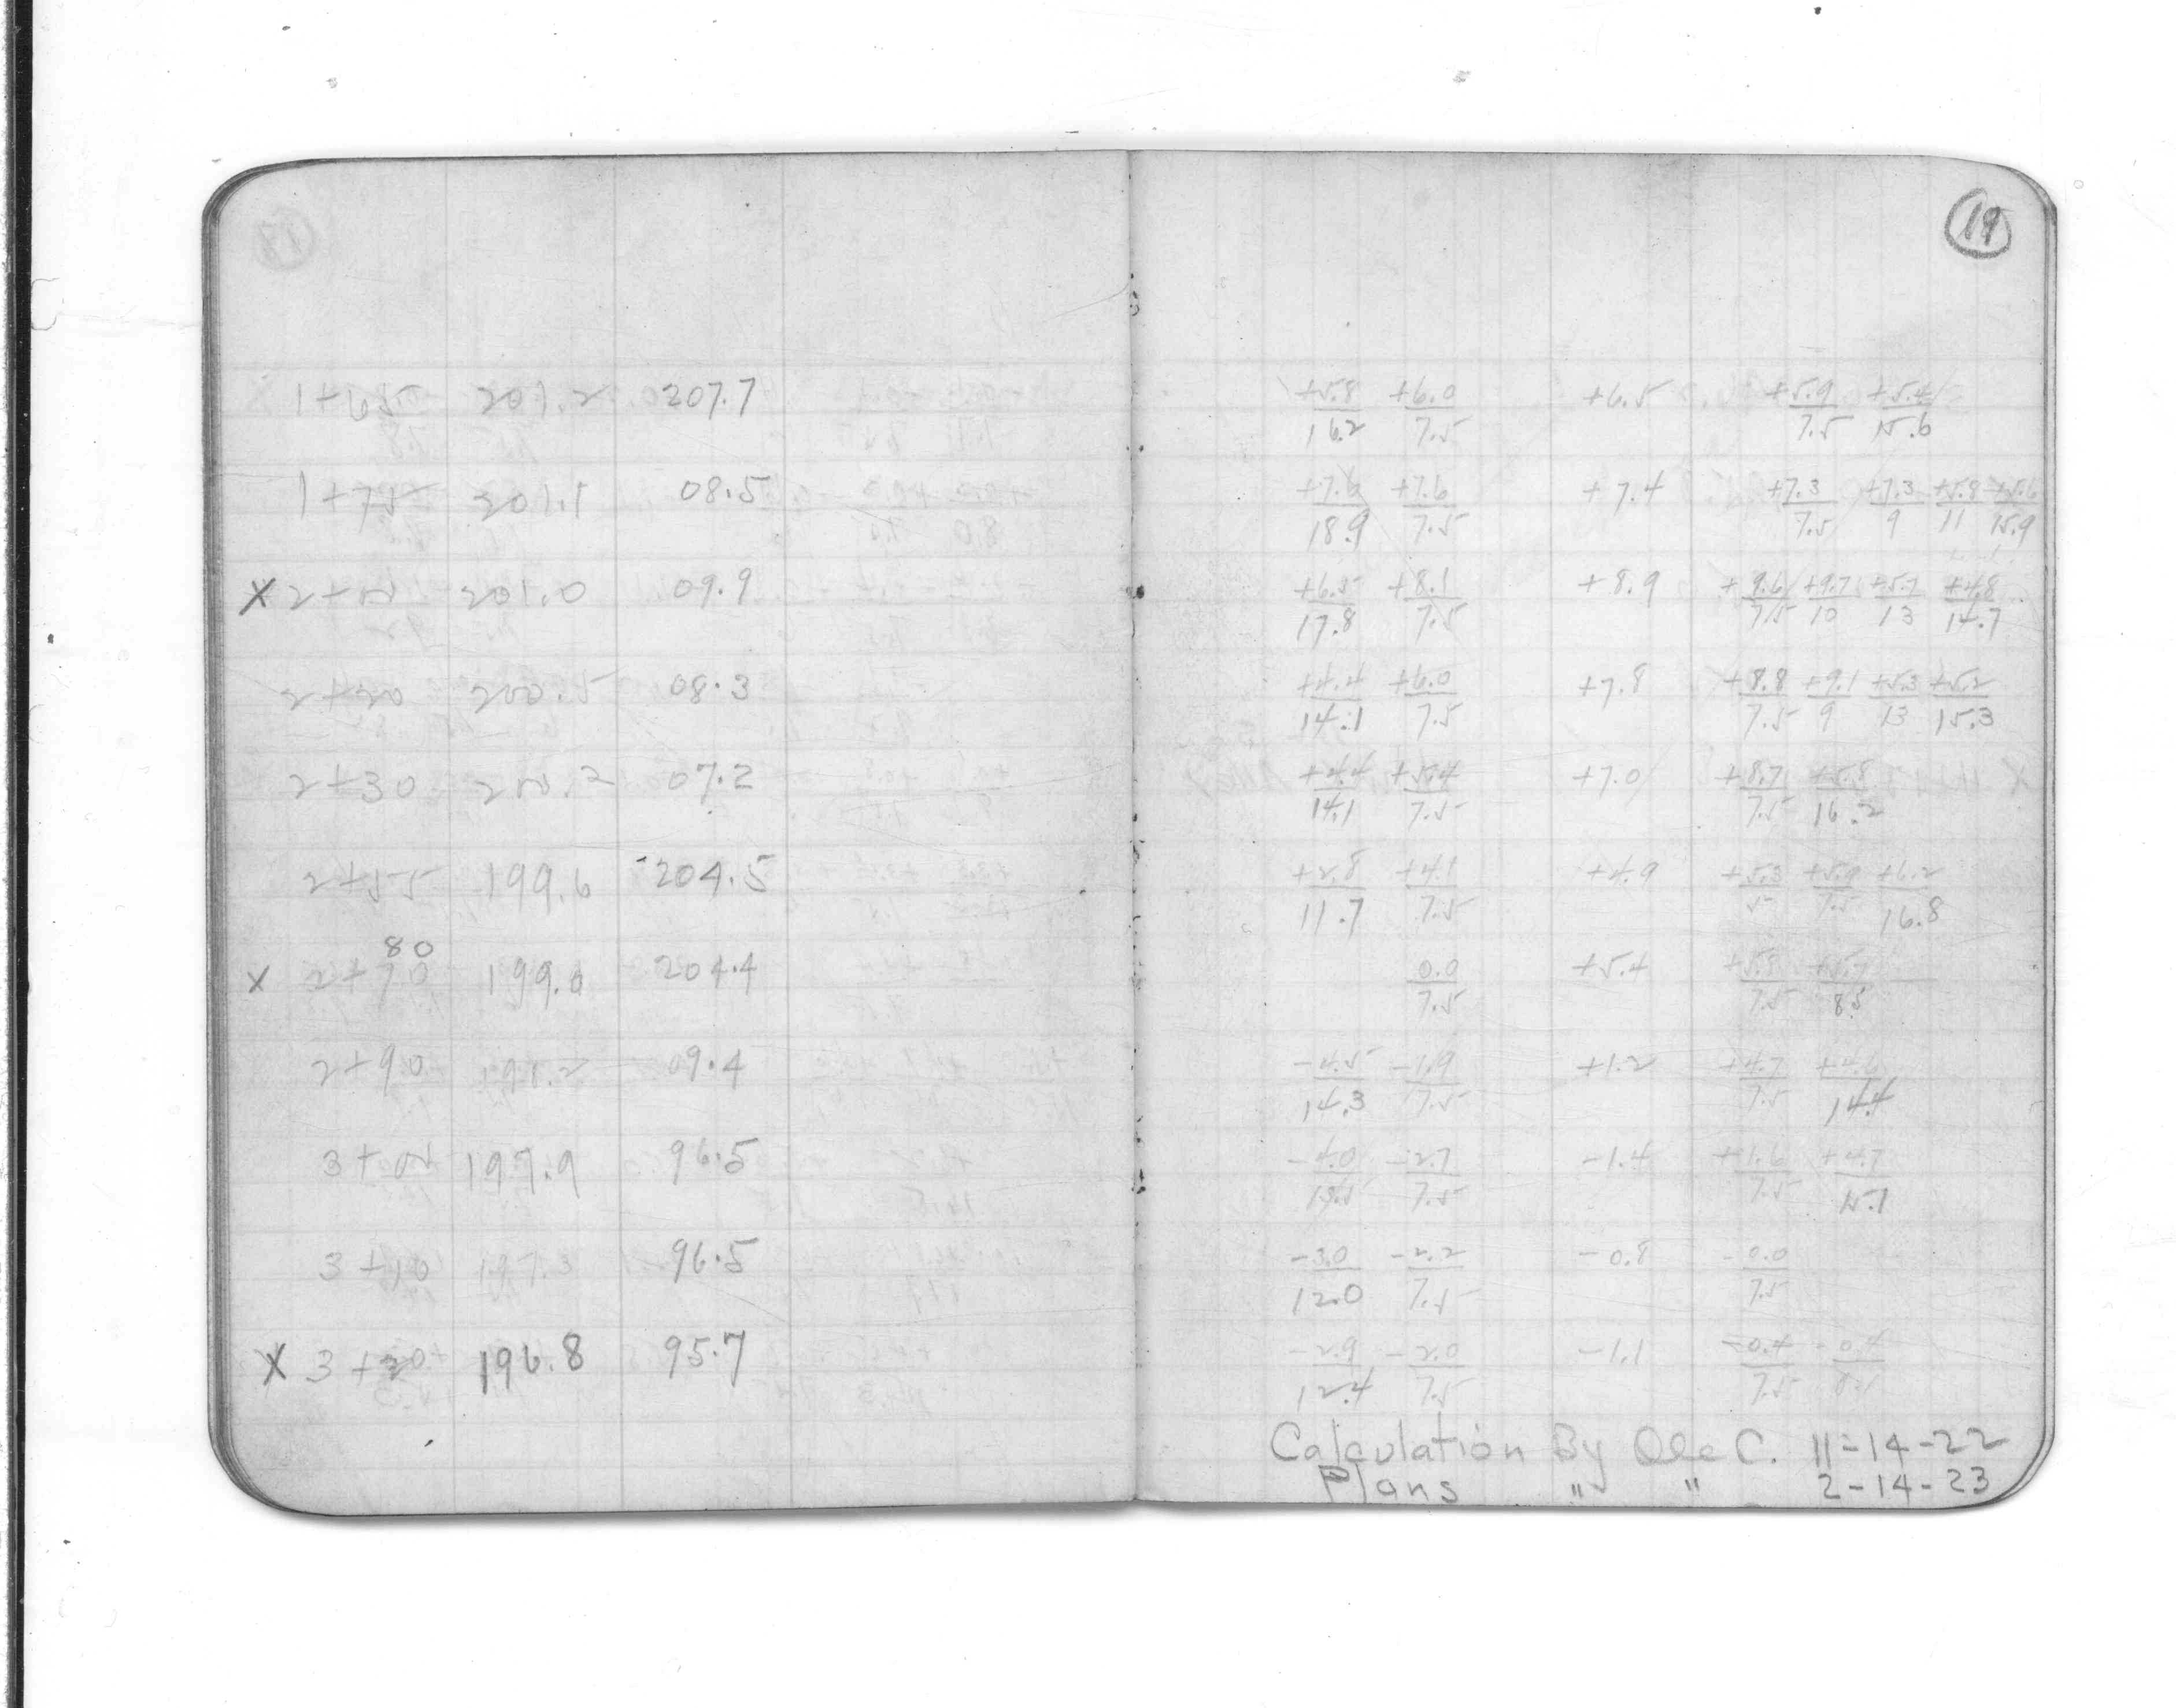 19
1+65 201.2 207.7 +5.8/16.2 +6.0/7.5 +6.5 +5.9/7.5 +5.4/15.6
1+75 201.1 08.5 +7.6/18.9 +7.6/7.5 +7.4 +7.3/7.5 +7.3/9 +5.8/11 +5.6/15.9
X 2+00 201.0 09.9 +6.5/17.8 +8.1/7.5 +8.9 +9.6/7.5 +9.7/10 +5.7/13 +4.8/14.7
2+20 200.5 08.3 +4.4/14.1 +6.0/7.5 +7.8 +8.8/7.5 +9.1/9 +5.3/13 +5.2/15.3
2+30 200.2 07.2 +4.4/14.1 +5.4/7.5 +7.0 +8.7/7.5 +5.8/16.2
2+55 199.6 204.5 +2.8/11.7 +4.1/7.5 +4.9 +5.3/5 +5.9/7.5 +6.2/16.8
80
X 2+70 199.0 204.4 0.0/7.5 +5.4 +5.8/7.5 +5.7/8.5
2+90 198.2 09.4 -4.5/14.3 -1.9/7.5 +1.2 +4.7/7.5 +4.6/14.4
3+00 197.9 96.5 -4.0/13.5 -2.7/7.5 -1.4 +1.6/7.5 +4.7/15.1
3+10 197.3 96.5 -3.0/12.0 -2.2/7.5 -0.8 -0.0/7.5
X 3+20 196.8 95.7 -2.9/12.4 -2.0/7.5 -1.1 -0.4/7.5 -0.4
Calculation By Ole C. 11-14-22
Plans " " 2-14-23